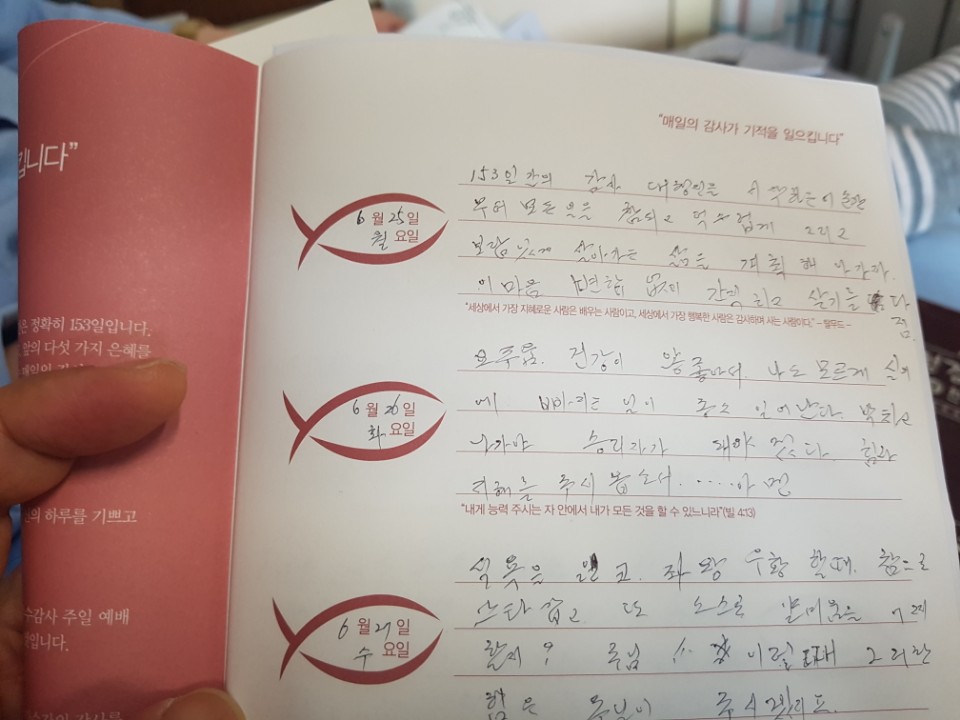 킵니다"
은 정확히 153일입니다.
앞의 다섯 가지 은혜를
의 하루를 기쁘고
수감사 주일 예배
"매일의 감사가 기적을 일으킵니다"
6월 25일
월요일
153일간의 감사 대행진을 시작하는 이 순간
부터 모든 일을 참되고 그리고
보람있게 살아가는 삶을 계획해 나가자.
이 마음 변함 없이 간직하고 살기를 다
짐
"세상에서 가장 지혜로운 사람은 배우는 사람이고, 세상에서 가장 행복한 사람은 감사하며 사는 사람이다." - 탈무드 -
6월 26일
화요일
요즈음. 건강이 안좋아서. 나도 모르게 실의
에 빠지는 일이 종종 일어난다. 박차고
나가야 승리자가 돼야 겠다. 힘과
지혜를 주시옵소서.....아멘
"내게 능력 주시는 자 안에서 내가 모든 것을 할 수 있느니라"(빌 4:13)
6월 27일
수요일
의욕을 잃고. 좌왕 우왕 할때. 참으로
안타깝고 또 스스로 어찌
할지? 주님 이럴때 그러한
힘은 주님이